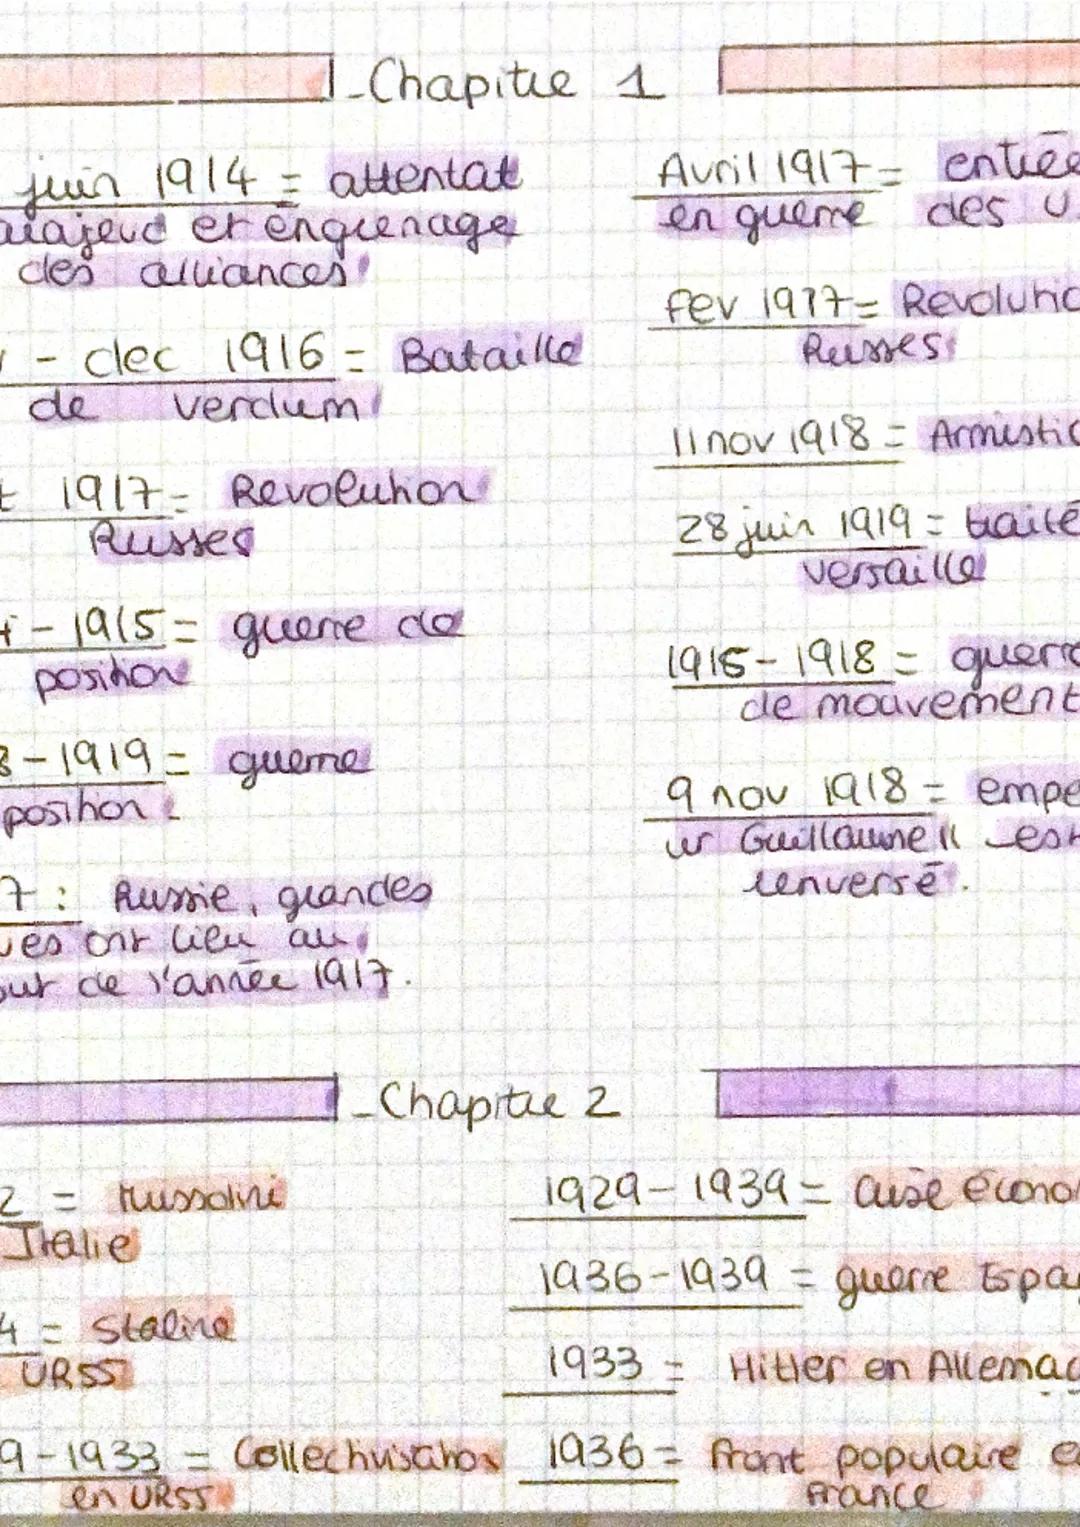 Chapitre 1
juin 1914 = attentat
et engrenage
des alliances
- dec 1916 = Bataille
de verdum
1917 = Revolution
Russes
- 1915 = guerre de
position
- 1919 = guerre
position
7 : Russie, grandes
ont lieu au
de l'année 1917.
Avril 1917 = entrée
en guerre des U
Fev 1917 = Revolutio
Russes
11 nov 1918 = Armistic
28 juin 1919 = traité
versaille
1915 - 1918 = guerre
de mouvement
9 nov 1918 = empe
ur Guillaume II est
renversé.
Chapitre 2
2 = Mussolini
Italie
4 = Staline
URSS
9 - 1933 = Collectivisation
en URSS
1929 - 1939 = crise écono
1936 - 1939 = guerre Espa
1933 = Hitler en Allemag
1936 = Front populaire e
France